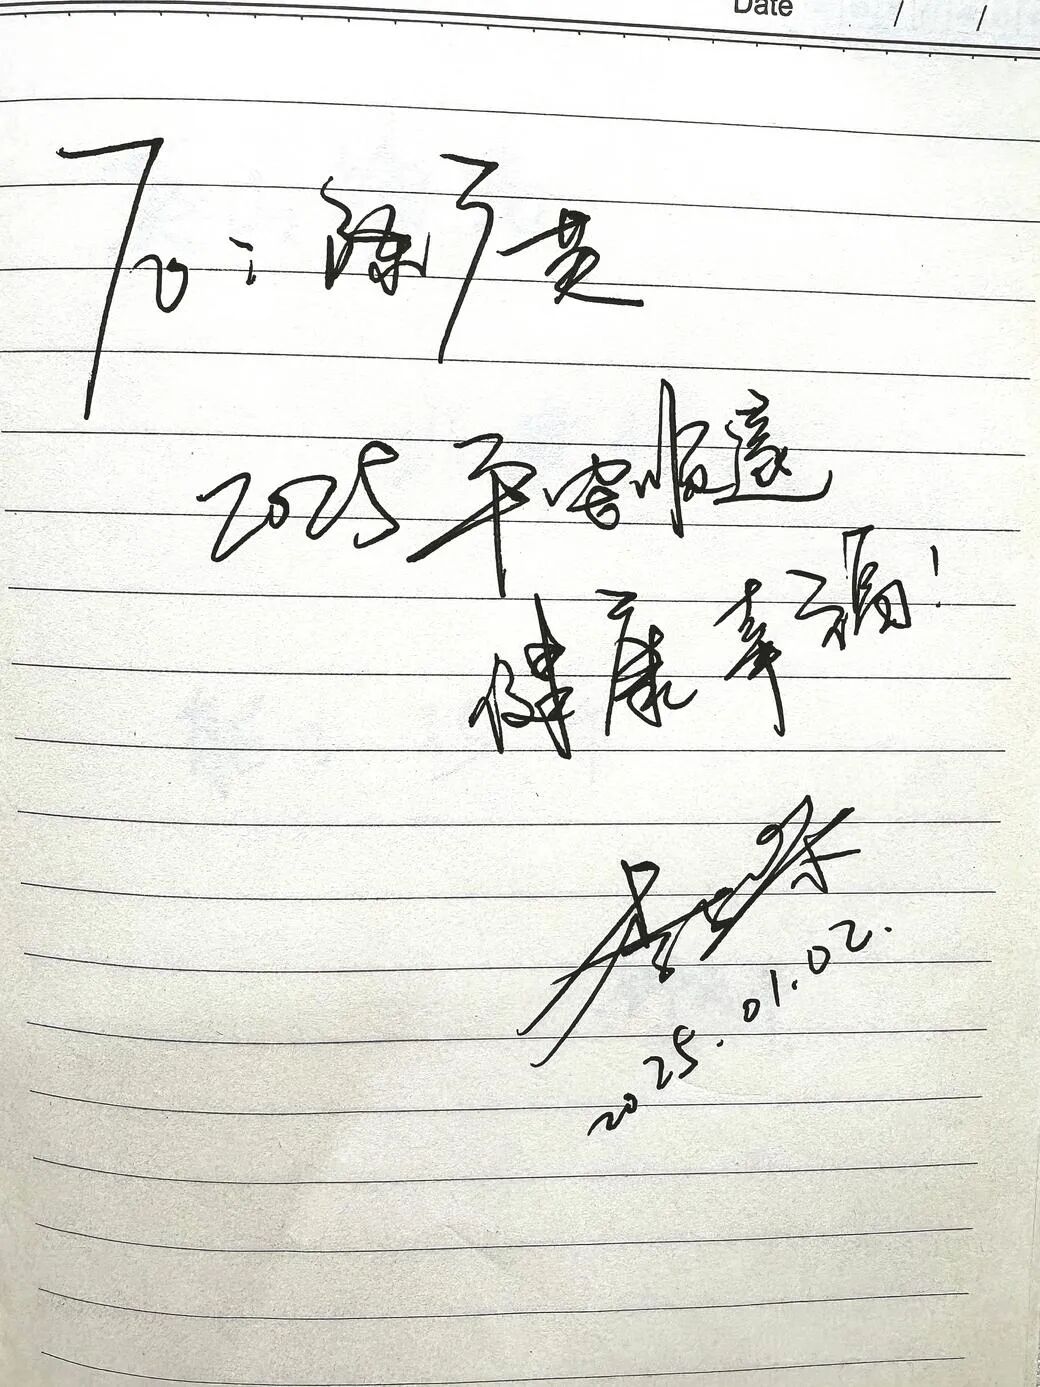 Date / /
To：陈
2025平安顺遂
健康幸福！
2025.01.02.